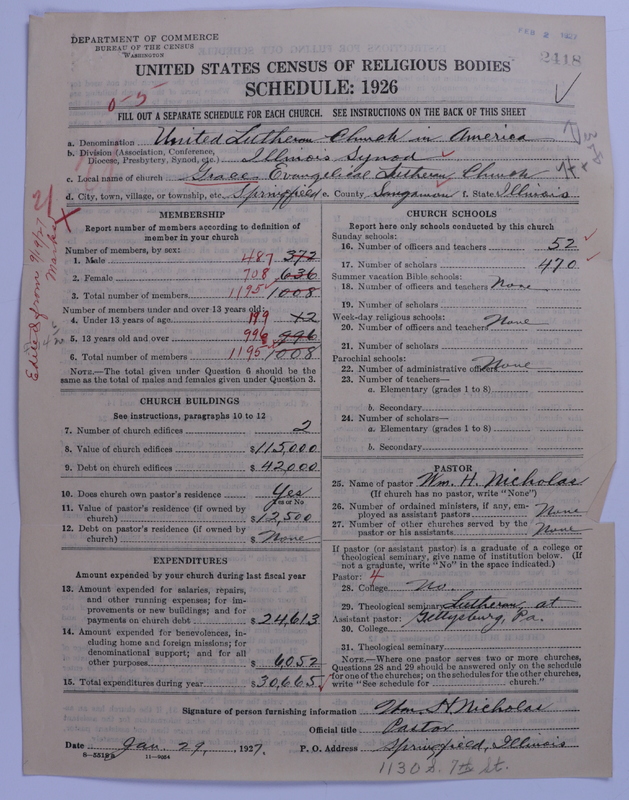 DEPARTMENT OF COMMERCE
BUREAU OF THE CENSUS
WASHINGTON
FEB 2 1927
2418
UNITED STATES CENSUS OF RELIGIOUS BODIES
SCHEDULE: 1926
0-5
FILL OUT A SEPARATE SCHEDULE FOR EACH CHURCH. SEE INSTRUCTIONS ON THE BACK OF THIS SHEET
a. Denomination United Lutheran Church in America
b. Division (Association, Conference, Diocese, Presbytery, Synod, etc.) Illinois Synod
c. Local name of church Grace Evangelical Lutheran Church
d. City, town, village, or township, etc. Springfield e. County, Sangamon f. State Illinois
MEMBERSHIP
Report number of members according to definition of
member in your church
Number of members, by sex:
1. Male 487 372
2. Female 708 636
3. Total number of members 1195 1008
Number of members under and over 13 years old:
4. Under 13 years of age 199 12
5. 13 years old and over 996 996
6. Total number of members 1195 1008
NOTE.—The total given under Question 6 should be
same as the total of males and females given under Question 3.
CHURCH BUILDINGS
See instructions, paragraphs 10 to 12
7. Number of church edifices 2
8. Value of church edifices $115,000
9. Debt on church edifices $42,000
10. Does church own pastor's residence Yes
Yes or No
11. Value of pastor's residence (if owned by
church) $12,500
12. Debt on pastor's residence (if owned by
church) $None
EXPENDITURES
Amount expended by your church during last fiscal year
13. Amount expended for salaries, repairs,
and other running expenses; for im-
provements or new buildings; and for
payments on church debt $24,613
14. Amount expended for benevolences, in-
cluding home and foreign missions; for
denominational support; and for all
other purposes $6052
15. Total expenditures during year $30,665
CHURCH SCHOOLS
Report here only schools conducted by this church
Sunday schools:
16. Number of officers and teachers 52
17. Number of scholars 470
Summer vacation Bible schools:
18. Number of officers and teachers None
19. Number of scholars
Week-day religious schools:
20. Number of officers and teachers None
21. Number of scholars
Parochial schools:
22. Number of administrative officers None
23. Number of teachers—
a. Elementary (grades 1 to 8)
b. Secondary
24. Number of scholars—
a. Elementary (grades 1 to 8)
b. Secondary
PASTOR
25. Name of pastor Wm. H. Nicholas
(If church has no pastor, write "None")
26. Number of ordained ministers, if any, em-
ployed as assistant pastors None
27. Number of other churches served by the
pastor or his assistants None
If pastor (or assistant pastor) is a graduate of a college or
theological seminary, give name of institution below. (If
not a graduate, write "No" in the space indicated.)
Pastor: 4
28. College No
29. Theological seminary Lutheran at
Assistant pastor: Gettysburg, Pa.
30. College
31. Theological seminary
NOTE.—Where one pastor serves two or more churches,
Questions 28 and 29 should be answered only on the schedule
for one of the churches; on the schedules for the other churches,
write "See schedule for church."
Signature of person furnishing information Wm. H. Nicholas
Official title Pastor
Date Jan. 29, 1927. P. O. Address Springfield, Illinois
1130 S. 7th St.
11—9054